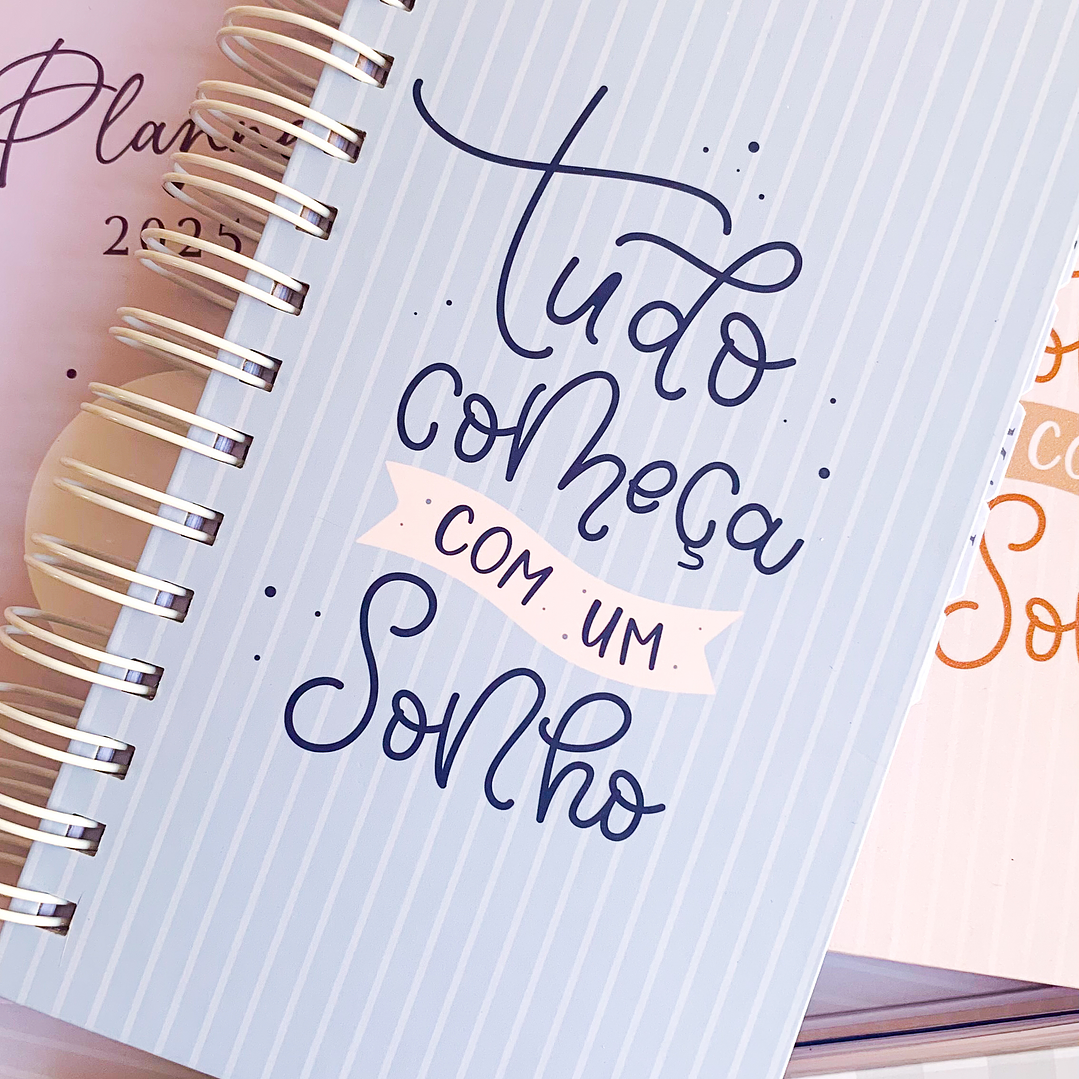 Planne
2025
Tudo
começa
COM UM
Sonho
CO
So